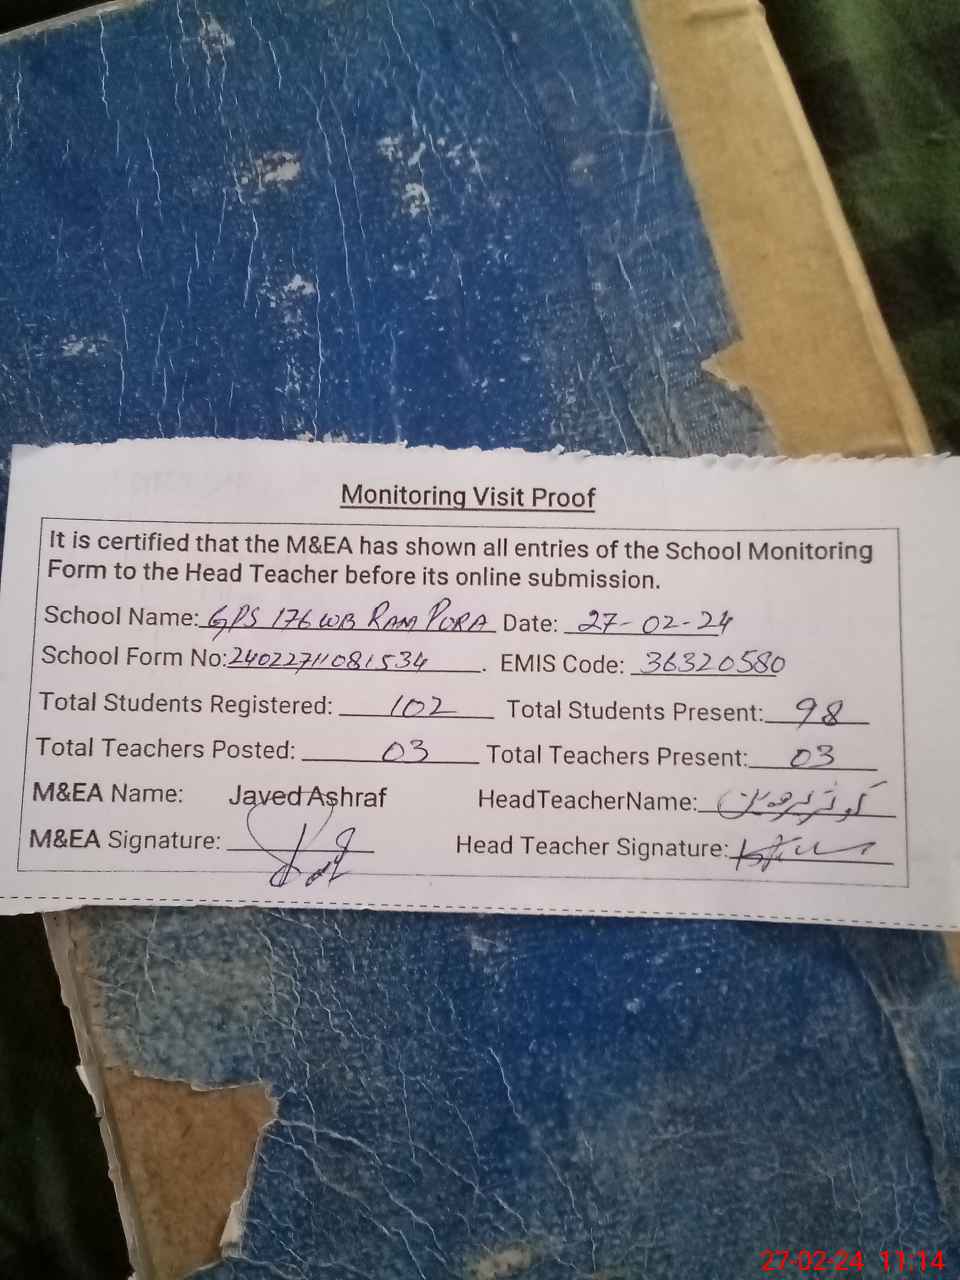 Monitoring Visit Proof
It is certified that the M&EA has shown all entries of the School Monitoring
Form to the Head Teacher before its online submission.
School Name: GPS 176 WB RAM PURA Date: 27-02-24
School Form No: 24022711081534. EMIS Code: 36320580
Total Students Registered: 102 Total Students Present: 98
Total Teachers Posted: 03 Total Teachers Present: 03
M&EA Name: Javed Ashraf HeadTeacherName: کوثر پروین
M&EA Signature: Head Teacher Signature:
27-02-24 11:14